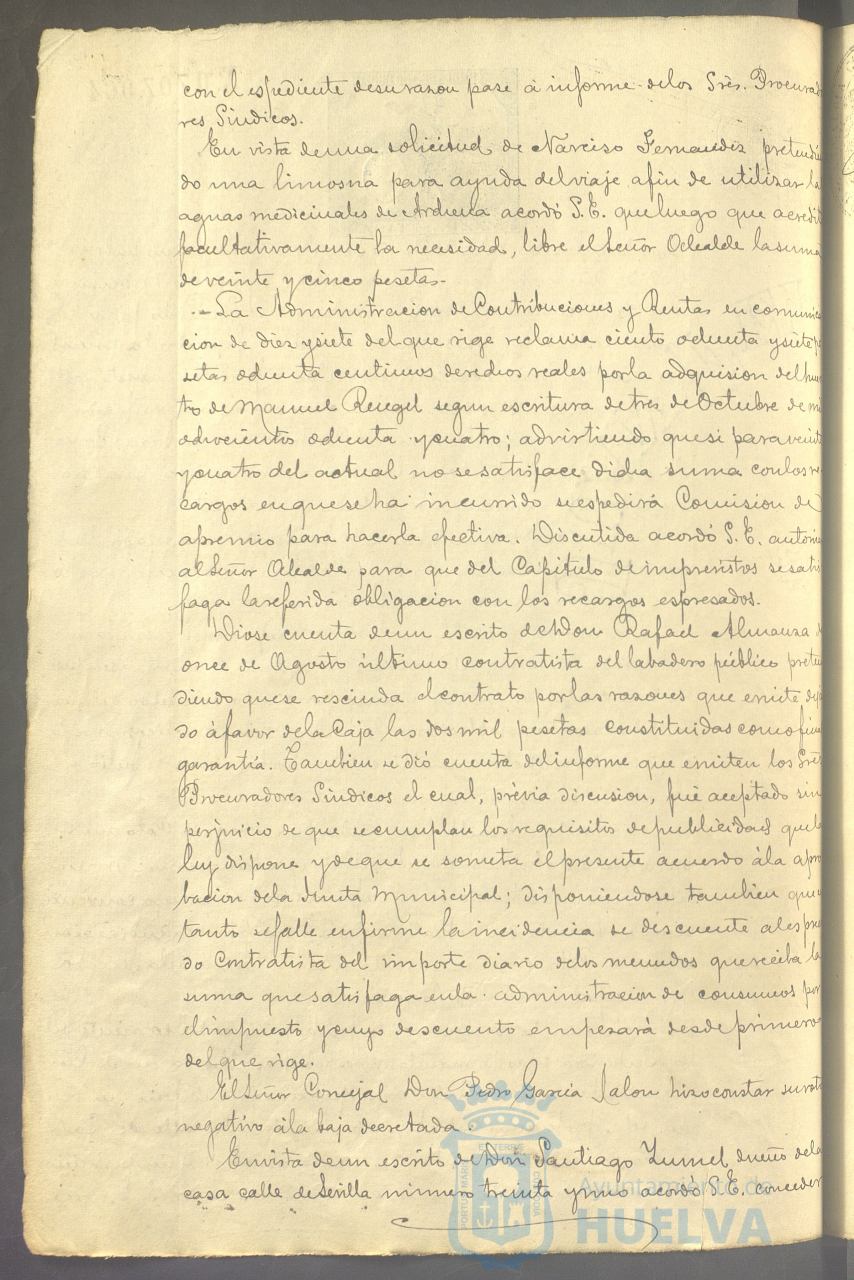 con el espediente de su razon pase á informe de los Sres. Procurado
res Sindicos.
En vista de una solicitud de Narciso Fernandez pretendien
do una limosna para ayuda del viaje afin de utilizar la
aguas medicinales de Archena acordó S.E. que luego que acredit
facultativamente la necesidad, libre el Señor Alcalde la suma
de veinte y cinco pesetas.
La Administracion de Contribuciones y Rentas en comunica
cion de diez y siete del que rige reclama ciento ochenta y siete pe
setas ochenta centimos derechos reales por la adquision del hue
to de Manuel Rengel segun escritura de tres de Octubre de mil
ochocientos ochenta y cuatro; advirtiendo que si para veinte
y cuatro del actual no se satisface dicha suma con los re
cargos en que se ha incurrido se espedirá Comision de
apremio para hacerla efectiva. Discutida acordó S.E. autoriza
al Señor Alcalde para que del Capitulo de imprevistos se satis
faga la referida obligacion con los recargos espresados.
Diose cuenta de un escrito de Don Rafael Almanza
once de Agosto último contratista del labadero público preten
diendo que se rescinda el contrato por las razones que emite
do á favor de la Caja las dos mil pesetas constituidas como
garantía. Tambien se dió cuenta del informe que emiten los Sres
Procuradores Sindicos el cual, prévia discusion, fué aceptado sin
perjuicio de que se cumplan los requisitos de publicidad que la
ley dispone y de que se someta el presente acuerdo á la apro
bacion de la Junta Municipal; disponiendose tambien que
tanto se falle en firme la incidencia se descuente al espresa
do Contratista del importe diario de los menudos que reciba la
suma que satisfaga en la administracion de consumos por
el impuesto y cuyo descuento empezará desde primero
del que rige.
El Señor Concejal Don Pedro García Jalon hizo constar su voto
negativo á la baja decretada.
En vista de un escrito de Don Santiago Zumel dueño de la
casa calle de Sevilla número treinta y uno acordó S.E. conceder
Ayuntamiento de
HUELVA